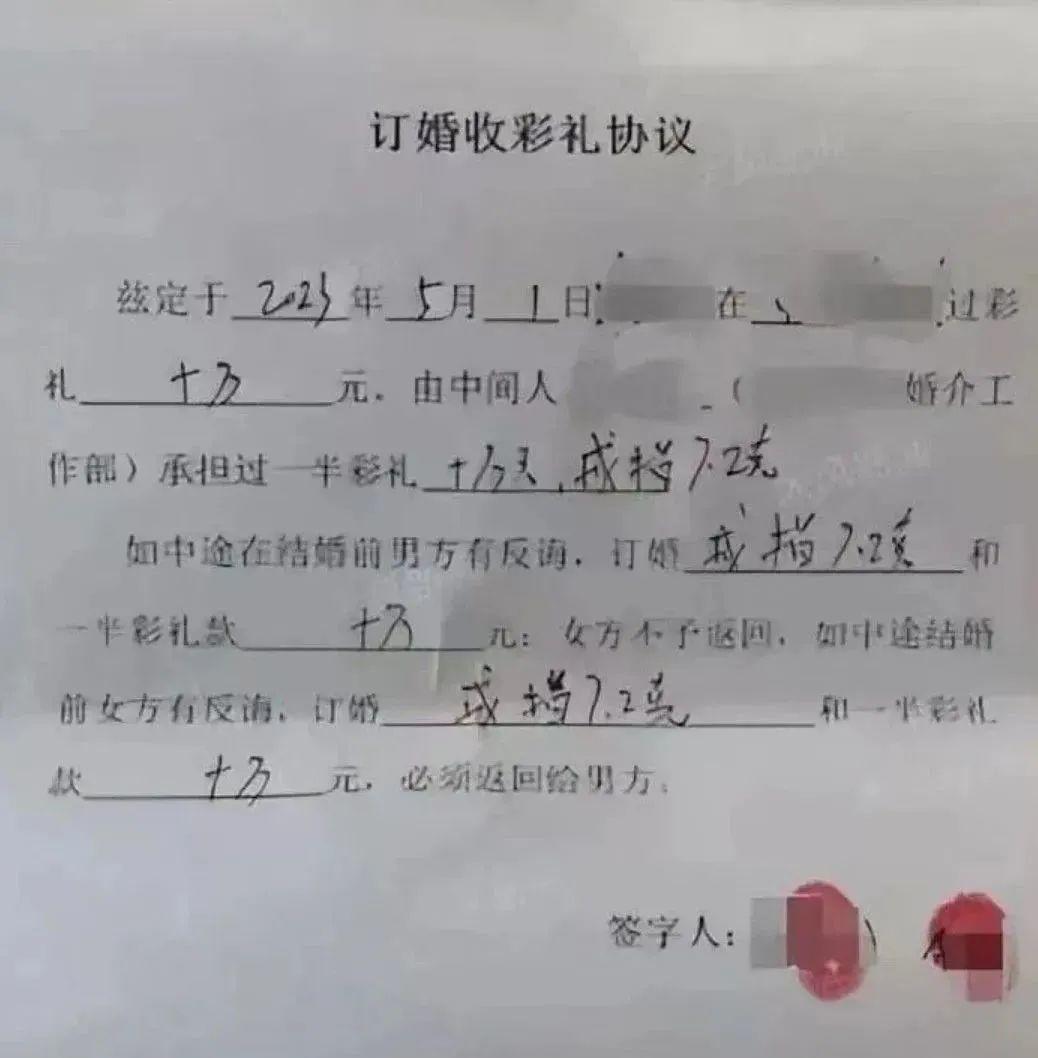 订婚收彩礼协议
兹定于 2023 年 5 月 1 日 在 过彩
礼 十万 元,由中间人 ( 婚介工
作部)承担过一半彩礼 十万元,戒指7.2克
如中途在结婚前男方有反诲,订婚 戒指7.2克 和
一半彩礼款 十万 元;女方不予返回,如中途结婚
前女方有反诲,订婚 戒指7.2克 和一半彩礼
款 十万 元,必须返回给男方。
签字人: